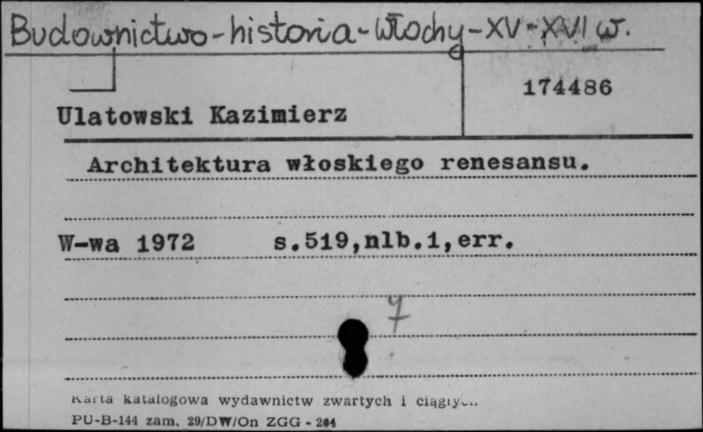 Budownictwo-historia-Włochy-XV-XVI w.
174486
Ulatowski Kazimierz
Architektura włoskiego renesansu.
W-wa 1972 s.519,nlb.1,err.
7
Karta katalogowa wydawnictw zwartych i
PU-B-144 zam. 29/DW/On ZGG - 204